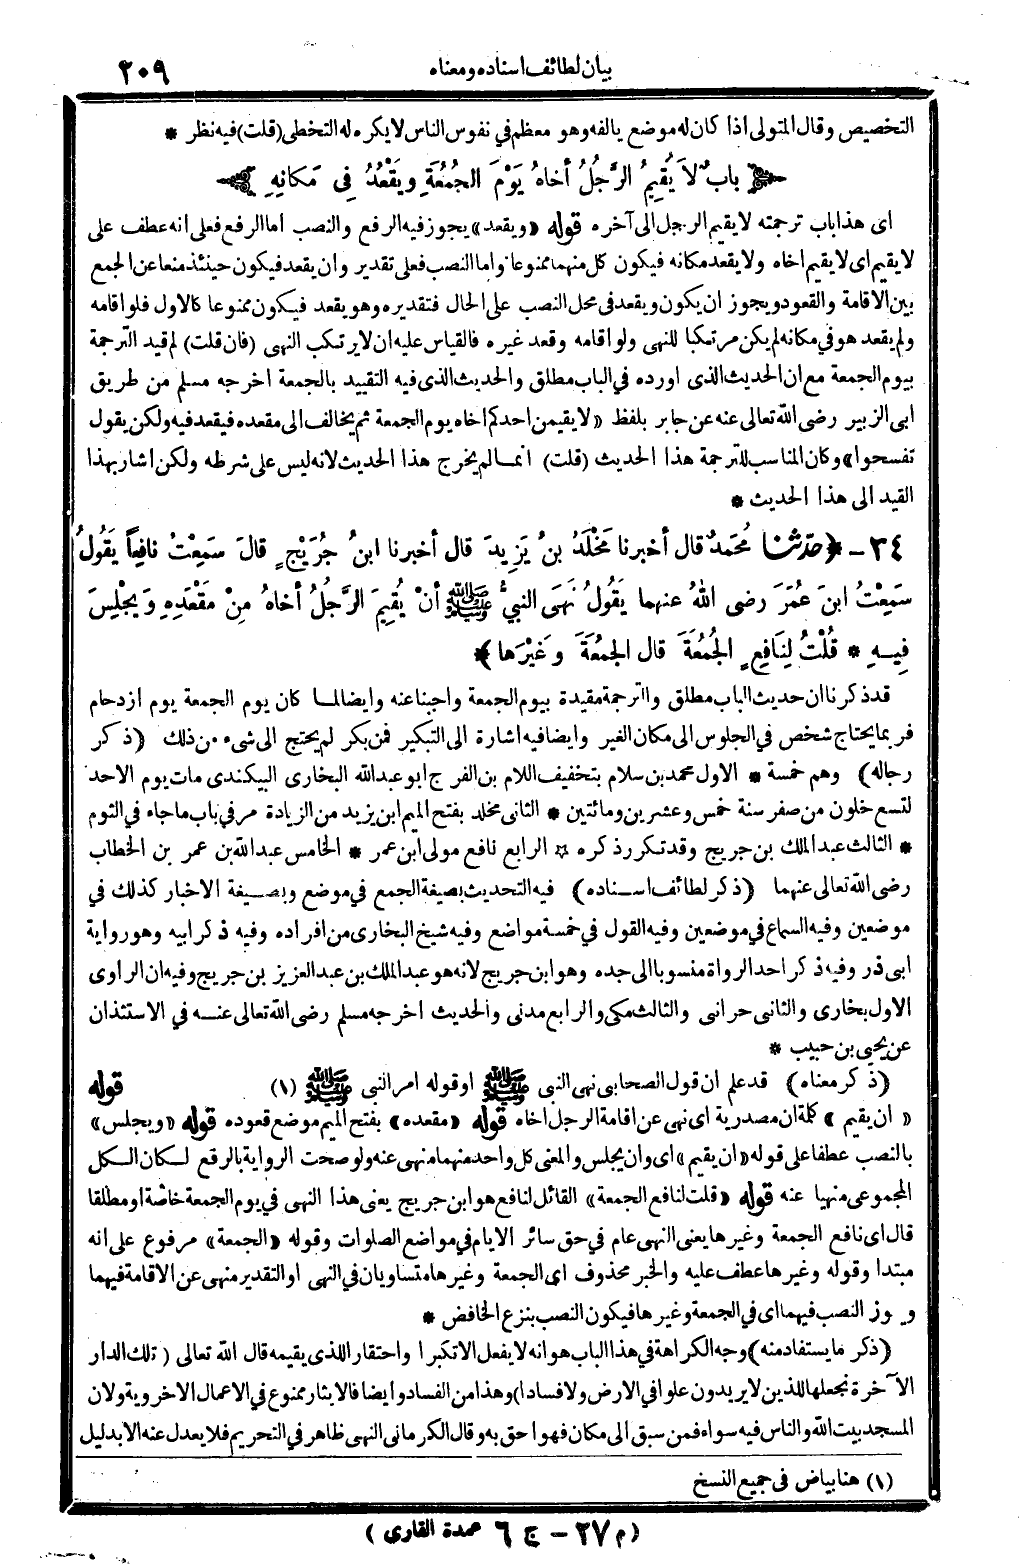 بيان لطائف اسناده ومعناه ٢٠٩
التخصيص وقال المتولى اذا كان له موضع يالفه وهو معظم في نفوس الناس لا يكره له التخطى (قلت) فيه نظر *
﴿ بابٌ لاَ يُقِيمُ الرَّجُلُ أخاهُ يَوْمَ الجُمُعَةِ ويَقْعُدُ فِى مَكانِهِ ﴾
اى هذا باب ترجمته لا يقيم الرجل الى آخره قوله «ويقعد» يجوز فيه الرفع والنصب اما الرفع فعلى انه عطف على
لا يقيم اى لا يقيم اخاه ولا يقعد مكانه فيكون كل منهما ممنوعا واما النصب فعلى تقدير وان يقعد فيكون حينئذ منعا عن الجمع
بين الاقامة والقعود ويجوز ان يكون ويقعد في محل النصب على الحال فتقديره وهو يقعد فيكون ممنوعا كالاول فلو اقامه
ولم يقعد هو في مكانه لم يكن مرتكبا للنهى ولو اقامه وقعد غيره فالقياس عليه ان لا يرتكب النهى (فان قلت) لم قيد الترجمة
بيوم الجمعة مع ان الحديث الذى اورده في الباب مطلق والحديث الذى فيه التقييد بالجمعة اخرجه مسلم من طريق
ابى الزبير رضى الله تعالى عنه عن جابر بلفظ «لا يقيمن احدكم اخاه يوم الجمعة ثم يخالف الى مقعده فيقعد فيه ولكن يقول
تفسحوا» وكان المناسب للترجمة هذا الحديث (قلت) انما لم يخرج هذا الحديث لانه ليس على شرطه ولكن اشار بهذا
القيد الى هذا الحديث *
٣٤ - ﴿حدثنا مُحَمدٌ قال أخبرنا مَخْلَدُ بنُ يَزِيدَ قال أخبرنا ابنُ جُرَيْجٍ قالَ سَمِعْتُ نافِعاً يَقُولُ
سَمِعْتُ ابنَ عُمَرَ رضى اللهُ عنهما يَقُولُ نَهَى النبيُّ ﷺ أنْ يُقِيمَ الرَّجُلُ أخاهُ مِنْ مَقْعَدِهِ وَيَجْلِسَ
فِيهِ * قُلْتُ لِنَافِعٍ الجُمُعَةَ قال الجمُعَةَ وغَيْرَها﴾
قد ذكرنا ان حديث الباب مطلق والترجمة مقيدة بيوم الجمعة واجبنا عنه وايضا لما كان يوم الجمعة يوم ازدحام
فربما يحتاج شخص في الجلوس الى مكان الغير وايضا فيه اشارة الى التبكير فمن بكر لم يحتج الى شيء من ذلك (ذكر
رجاله) وهم خمسة * الاول محمد بن سلام بتخفيف اللام بن الفرج ابو عبد الله البخارى البيكندى مات يوم الاحد
لتسع خلون من صفر سنة خمس وعشرين ومائتين * الثانى مخلد بفتح الميم ابن يزيد من الزيادة مر في باب ما جاء في الثوم
* الثالث عبد الملك بن جريج وقد تكرر ذكره * الرابع نافع مولى ابن عمر * الخامس عبد الله بن عمر بن الخطاب
رضى الله تعالى عنهما (ذكر لطائف اسناده) فيه التحديث بصيغة الجمع في موضع وبصيغة الاخبار كذلك في
موضعين وفيه السماع في موضعين وفيه القول في خمسة مواضع وفيه شيخ البخارى من افراده وفيه ذكر ابيه وهو رواية
ابى ذر وفيه ذكر احد الرواة منسوبا الى جده وهو ابن جريج لانه هو عبد الملك بن عبد العزيز بن جريج وفيه ان الراوى
الاول بخارى والثانى حرانى والثالث مكى والرابع مدنى والحديث اخرجه مسلم رضى الله تعالى عنه في الاستئذان
عن يحيى بن حبيب *
(ذكر معناه) قد علم ان قول الصحابى نهى النبى ﷺ او قوله امر النبى ﷺ (١) قوله
«ان يقيم» كلمة ان مصدرية اى نهى عن اقامة الرجل اخاه قوله «مقعده» بفتح الميم موضع قعوده قوله «ويجلس»
بالنصب عطفا على قوله «ان يقيم» اى وان يجلس والمعنى كل واحد منهما منهى عنه ولو صحت الرواية بالرفع لكان الكل
المجموعى منهيا عنه قوله «قلت لنافع الجمعة» القائل لنافع هو ابن جريج يعنى هذا النهى في يوم الجمعة خاصة او مطلقا
قال اى نافع الجمعة وغيرها يعنى النهى عام في حق سائر الايام في مواضع الصلوات وقوله «الجمعة» مرفوع على انه
مبتدا وقوله وغيرها عطف عليه والخبر محذوف اى الجمعة وغيرها متساويان في النهى او التقدير منهى عن الاقامة فيهما
ويجوز النصب فيهما اى في الجمعة وغيرها فيكون النصب بنزع الخافض *
(ذكر ما يستفاد منه) وجه الكراهة في هذا الباب هو انه لا يفعل الا تكبرا واحتقار اللذى يقيمه قال الله تعالى (تلك الدار
الآخرة نجعلها للذين لا يريدون علوا في الارض ولا فسادا) وهذا من الفساد وايضا فالايثار ممنوع في الاعمال الاخروية ولان
المسجد بيت الله والناس فيه سواء فمن سبق الى مكان فهو احق به وقال الكرمانى النهى ظاهر في التحريم فلا يعدل عنه الا بدليل
(١) هنا بياض في جميع النسخ
(م ٢٧ - ج ٦ عمدة القارى)